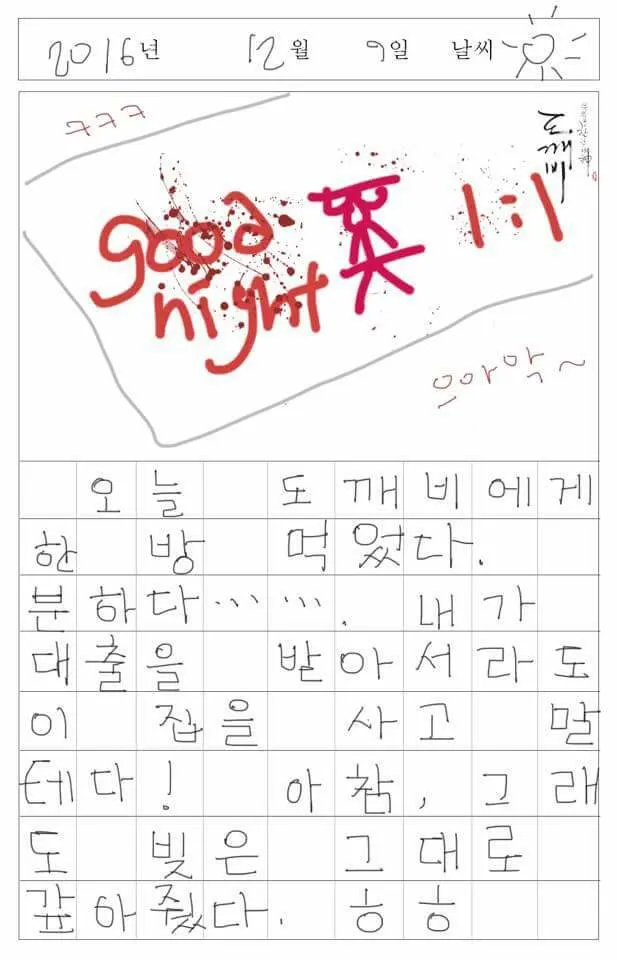 2016년 12월 9일 날씨
ㅋㅋㅋ
도깨비
good
night
1:1
으아악~
오늘 도깨비에게
한 방 먹었다.
분하다……. 내가
대출을 받아서라도
이 집을 사고 말
테다! 아참, 그래
도 빚은 그대로
갚아줬다. ㅎㅎ